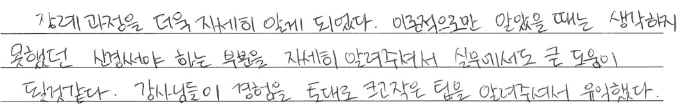 장례과정을 더욱 자세히 알게 되었다. 이론적으로만 알았을 때는 생각하지
못했던 신경써야 하는 부분을 자세히 알려주셔서 실무에서도 큰 도움이
될것같다. 강사님들이 경험을 토대로 크고작은 팁을 알려주셔서 유익했다.